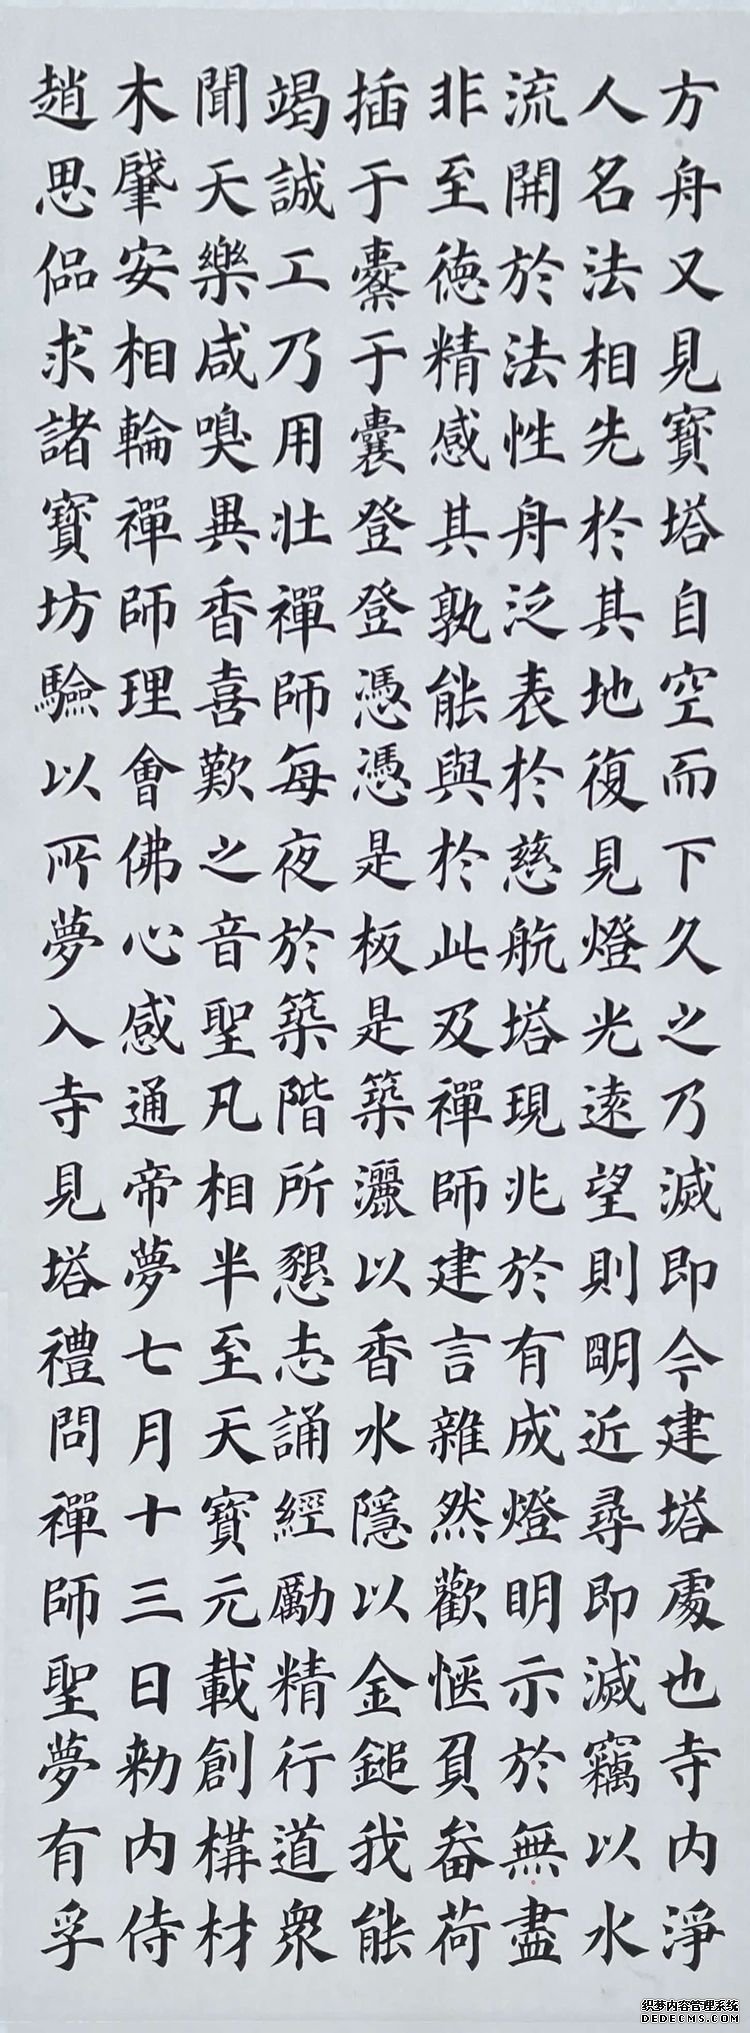 方舟又見寶塔自空而下久之乃滅即今建塔處也寺内淨
人名法相先於其地復見燈光遠望則明近尋即滅竊以水
流開於法性舟泛表於慈航塔現兆於有成燈明示於無盡
非至德精感其孰能與於此及禪師建言雜然歡愜負畚荷
插于橐于囊登登憑憑是板是築灑以香水隱以金鎚我能
竭誠工乃用壯禪師每夜於築階所懇志誦經勵精行道衆
聞天樂咸嗅異香喜歎之音聖凡相半至天寶元載創構材
木肇安相輪禪師理會佛心感通帝夢七月十三日勑内侍
趙思偘求諸寶坊驗以所夢入寺見塔禮問禪師聖夢有孚
织梦内容管理系统
DEDECMS.COM